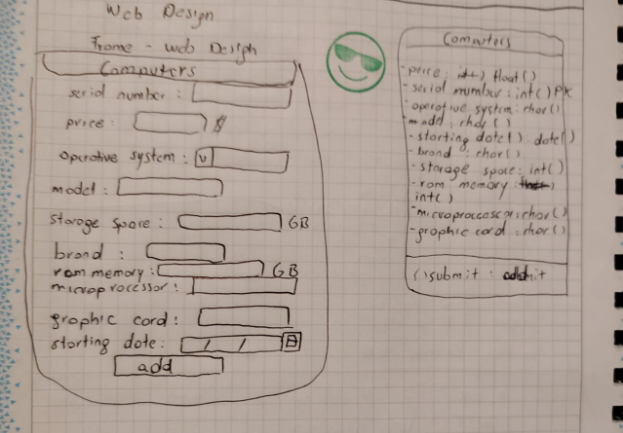 Web Design
Frame - Web Design
Computers
serial number :
price : $
operative system : v
model :
storage space : GB
brand :
ram memory : GB
microprocessor :
graphic card :
starting date : / /
add
Computers
- price : float()
- serial number : int() PK
- operative system : char()
- model : char()
- starting date() : date()
- brand : char()
- storage space : int()
- ram memory :
int()
- microprocessor : char()
- graphic card : char()
() submit :